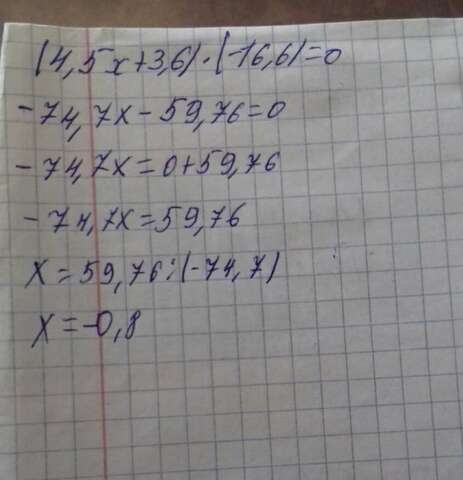 (4,5x+3,6)·(-16,6)=0
-74,7x-59,76=0
-74,7x=0+59,76
-74,7x=59,76
x=59,76:(-74,7)
x=-0,8